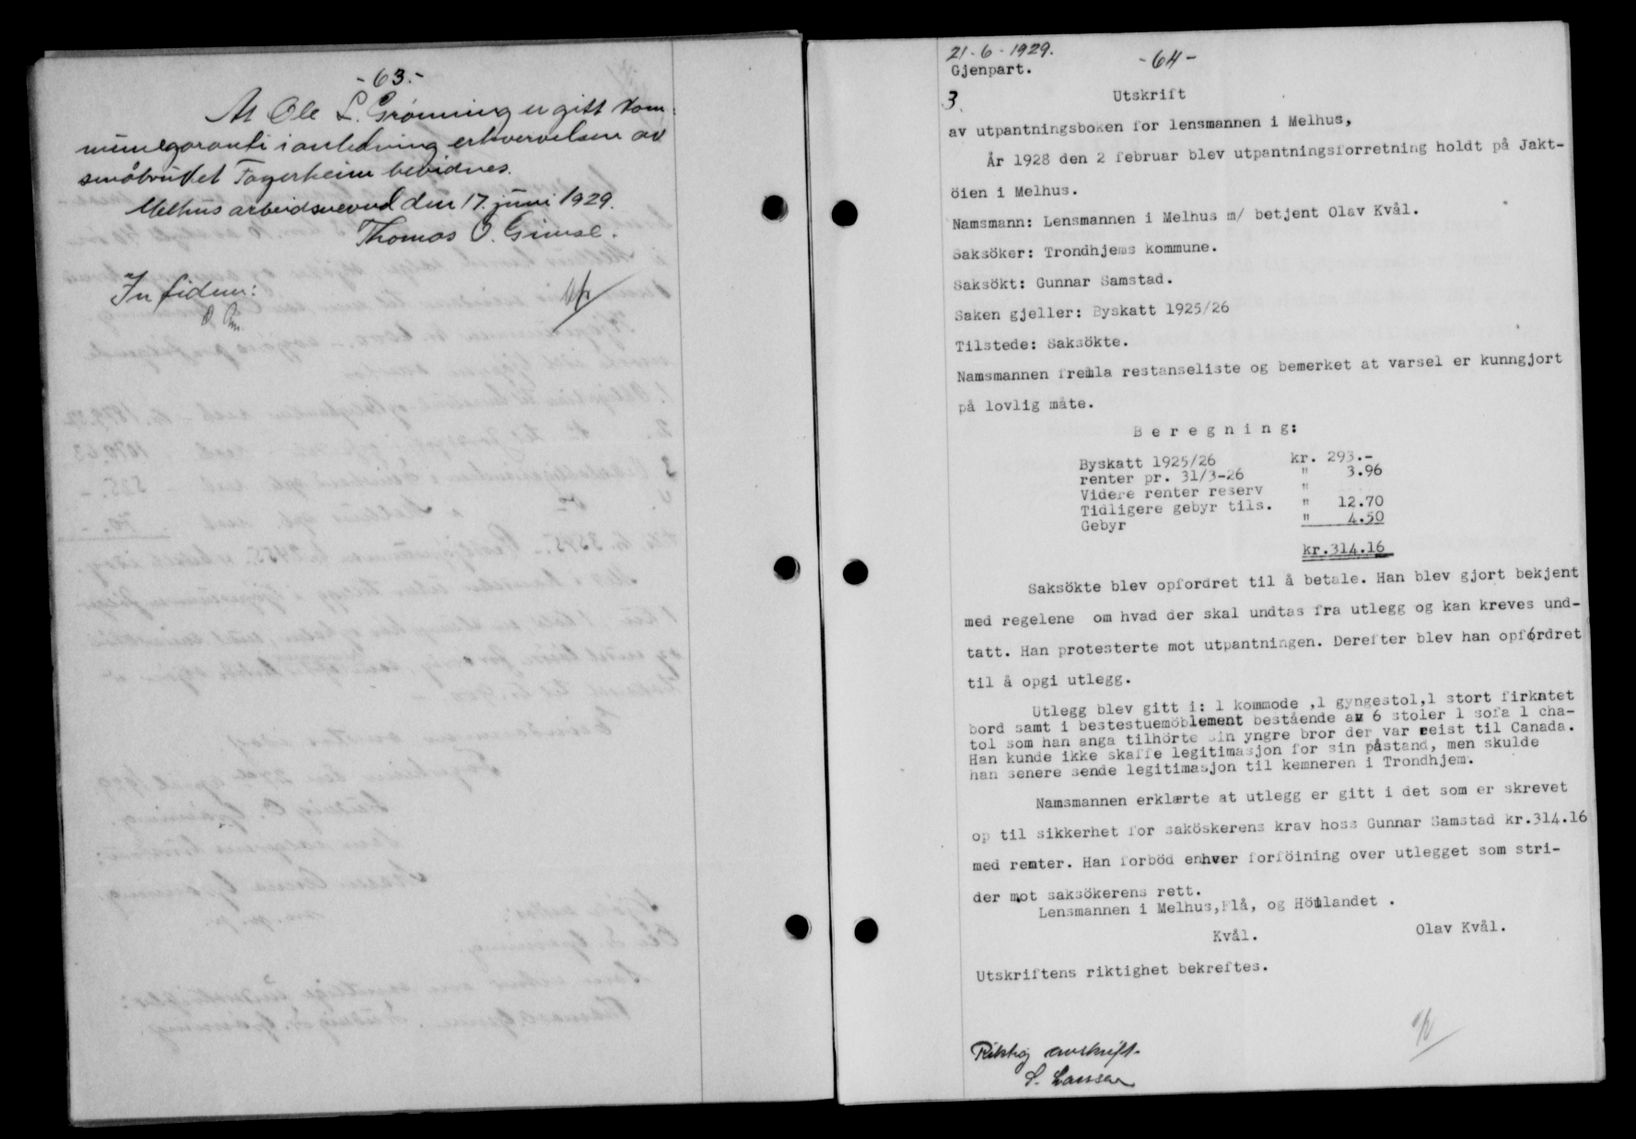 - 63. -
At Ole L. Grønning er gitt kom-
munegaranti i anledning erhvervelsen av
småbruket Fagerheim bevidnes.
Melhus arbeidsnevnd den 17. juni 1929.
Thomas O. Gimse.
In fidem:
21-6-1929.
- 64 -
Gjenpart.
3.
Utskrift
av utpantningsboken for lensmannen i Melhus,
År 1928 den 2 februar blev utpantningsforretning holdt på Jakt-
öien i Melhus.
Namsmann: Lensmannen i Melhus m/ betjent Olav Kvål.
Saksöker: Trondhjems kommune.
Saksökt: Gunnar Samstad.
Saken gjeller: Byskatt 1925/26
Tilstede: Saksökte.
Namsmannen fremla restanseliste og bemerket at varsel er kunngjort
på lovlig måte.
B e r e g n i n g:
Byskatt 1925/26 kr. 293.-
renter pr. 31/3-26 " 3.96
Videre renter reserv "
Tidligere gebyr tils. " 12.70
Gebyr " 4.50
kr.314.16
Saksökte blev opfordret til å betale. Han blev gjort bekjent
med regelene om hvad der skal undtas fra utlegg og kan kreves und-
tatt. Han protesterte mot utpantningen. Derefter blev han opfordret
til å opgi utlegg.
Utlegg blev gitt i: 1 kommode ,1 gyngestol,1 stort firkntet
bord samt i bestestuemöblement bestående av 6 stoler 1 sofa 1 cha-
tol som han anga tilhörte sin yngre bror der var reist til Canada.
Han kunde ikke skaffe legitimasjon for sin påstand, men skulde
han senere sende legitimasjon til kemneren i Trondhjem.
Namsmannen erklærte at utlegg er gitt i det som er skrevet
op til sikkerhet for saköskerens krav hoss Gunnar Samstad kr.314.16
med renter. Han forböd enhver forföining over utlegget som stri-
der mot saksökerens rett.
Lensmannen i Melhus,Flå, og Hölandet .
Kvål. Olav Kvål.
Utskriftens riktighet bekreftes.
Riktig avskrift.